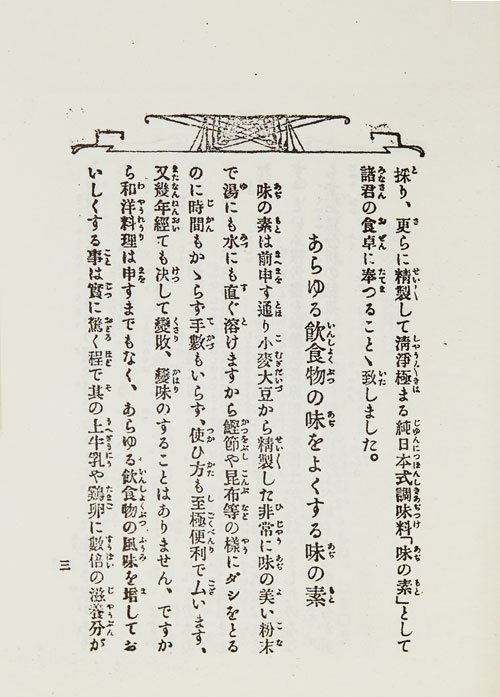 採り、更らに精製して清淨極まる純日本式調味料「味の素」として
諸君の食卓に奉つることゝ致しました。
あらゆる飲食物の味をよくする味の素
味の素は前申す通り小麥大豆から精製した非常に味の美い粉末
で湯にも水にも直ぐ溶けますから鰹節や昆布等の樣にダシをとる
のに時間もかゝらず手數もいらず、使ひ方も至極便利でムいます、
又幾年經ても決して變敗、變味のすることはありません、ですか
ら和洋料理は申すまでもなく、あらゆる飲食物の風味を增してお
いしくする事は實に驚く程で其の上牛乳や鷄卵に數倍の滋養分が
三